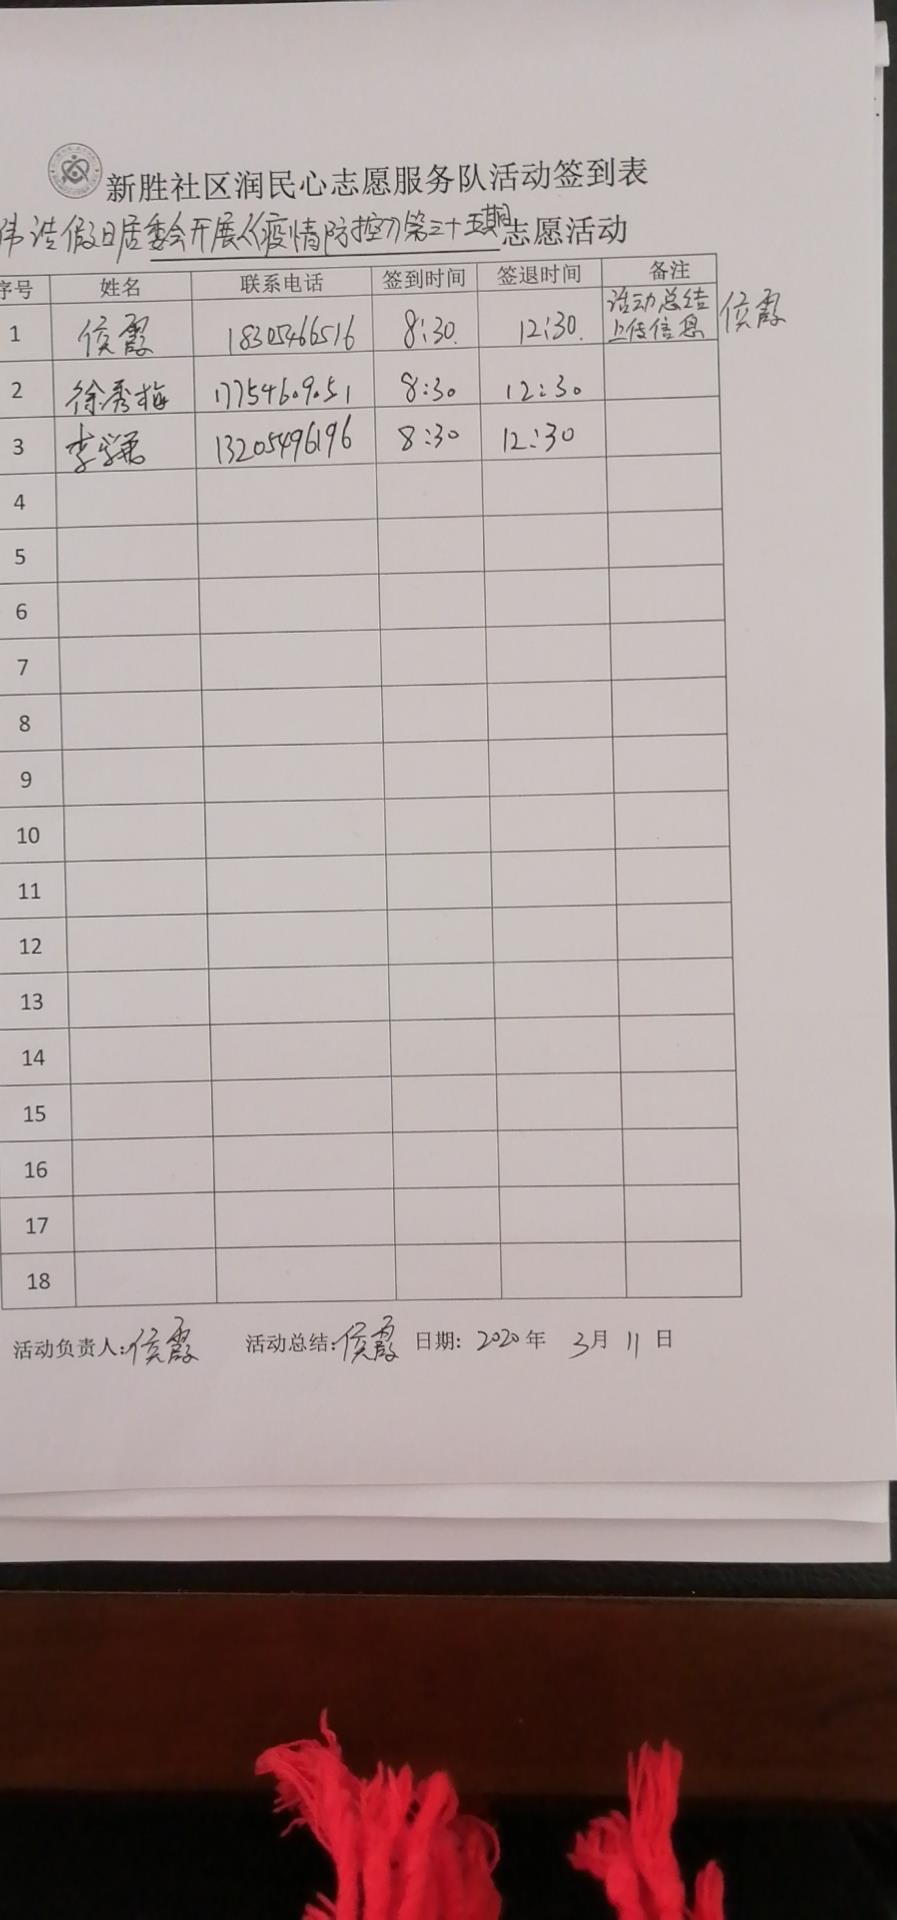 新胜社区润民心志愿服务队活动签到表
伟浩假日居委会开展《疫情防控》第三十五期志愿活动
序号 姓名 联系电话 签到时间 签退时间 备注
1 侯霞 18305466516 8:30. 12:30. 活动总结 上传信息 侯霞
2 徐秀梅 8:30 12:30
3 13205496196 8:30 12:30
4
5
6
7
8
9
10
11
12
13
14
15
16
17
18
活动负责人:侯霞 活动总结:侯霞 日期: 2020年 3月 11日